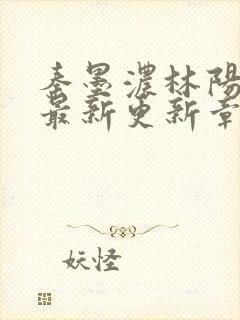 秦墨濃林陽
最新更新章
妖怪